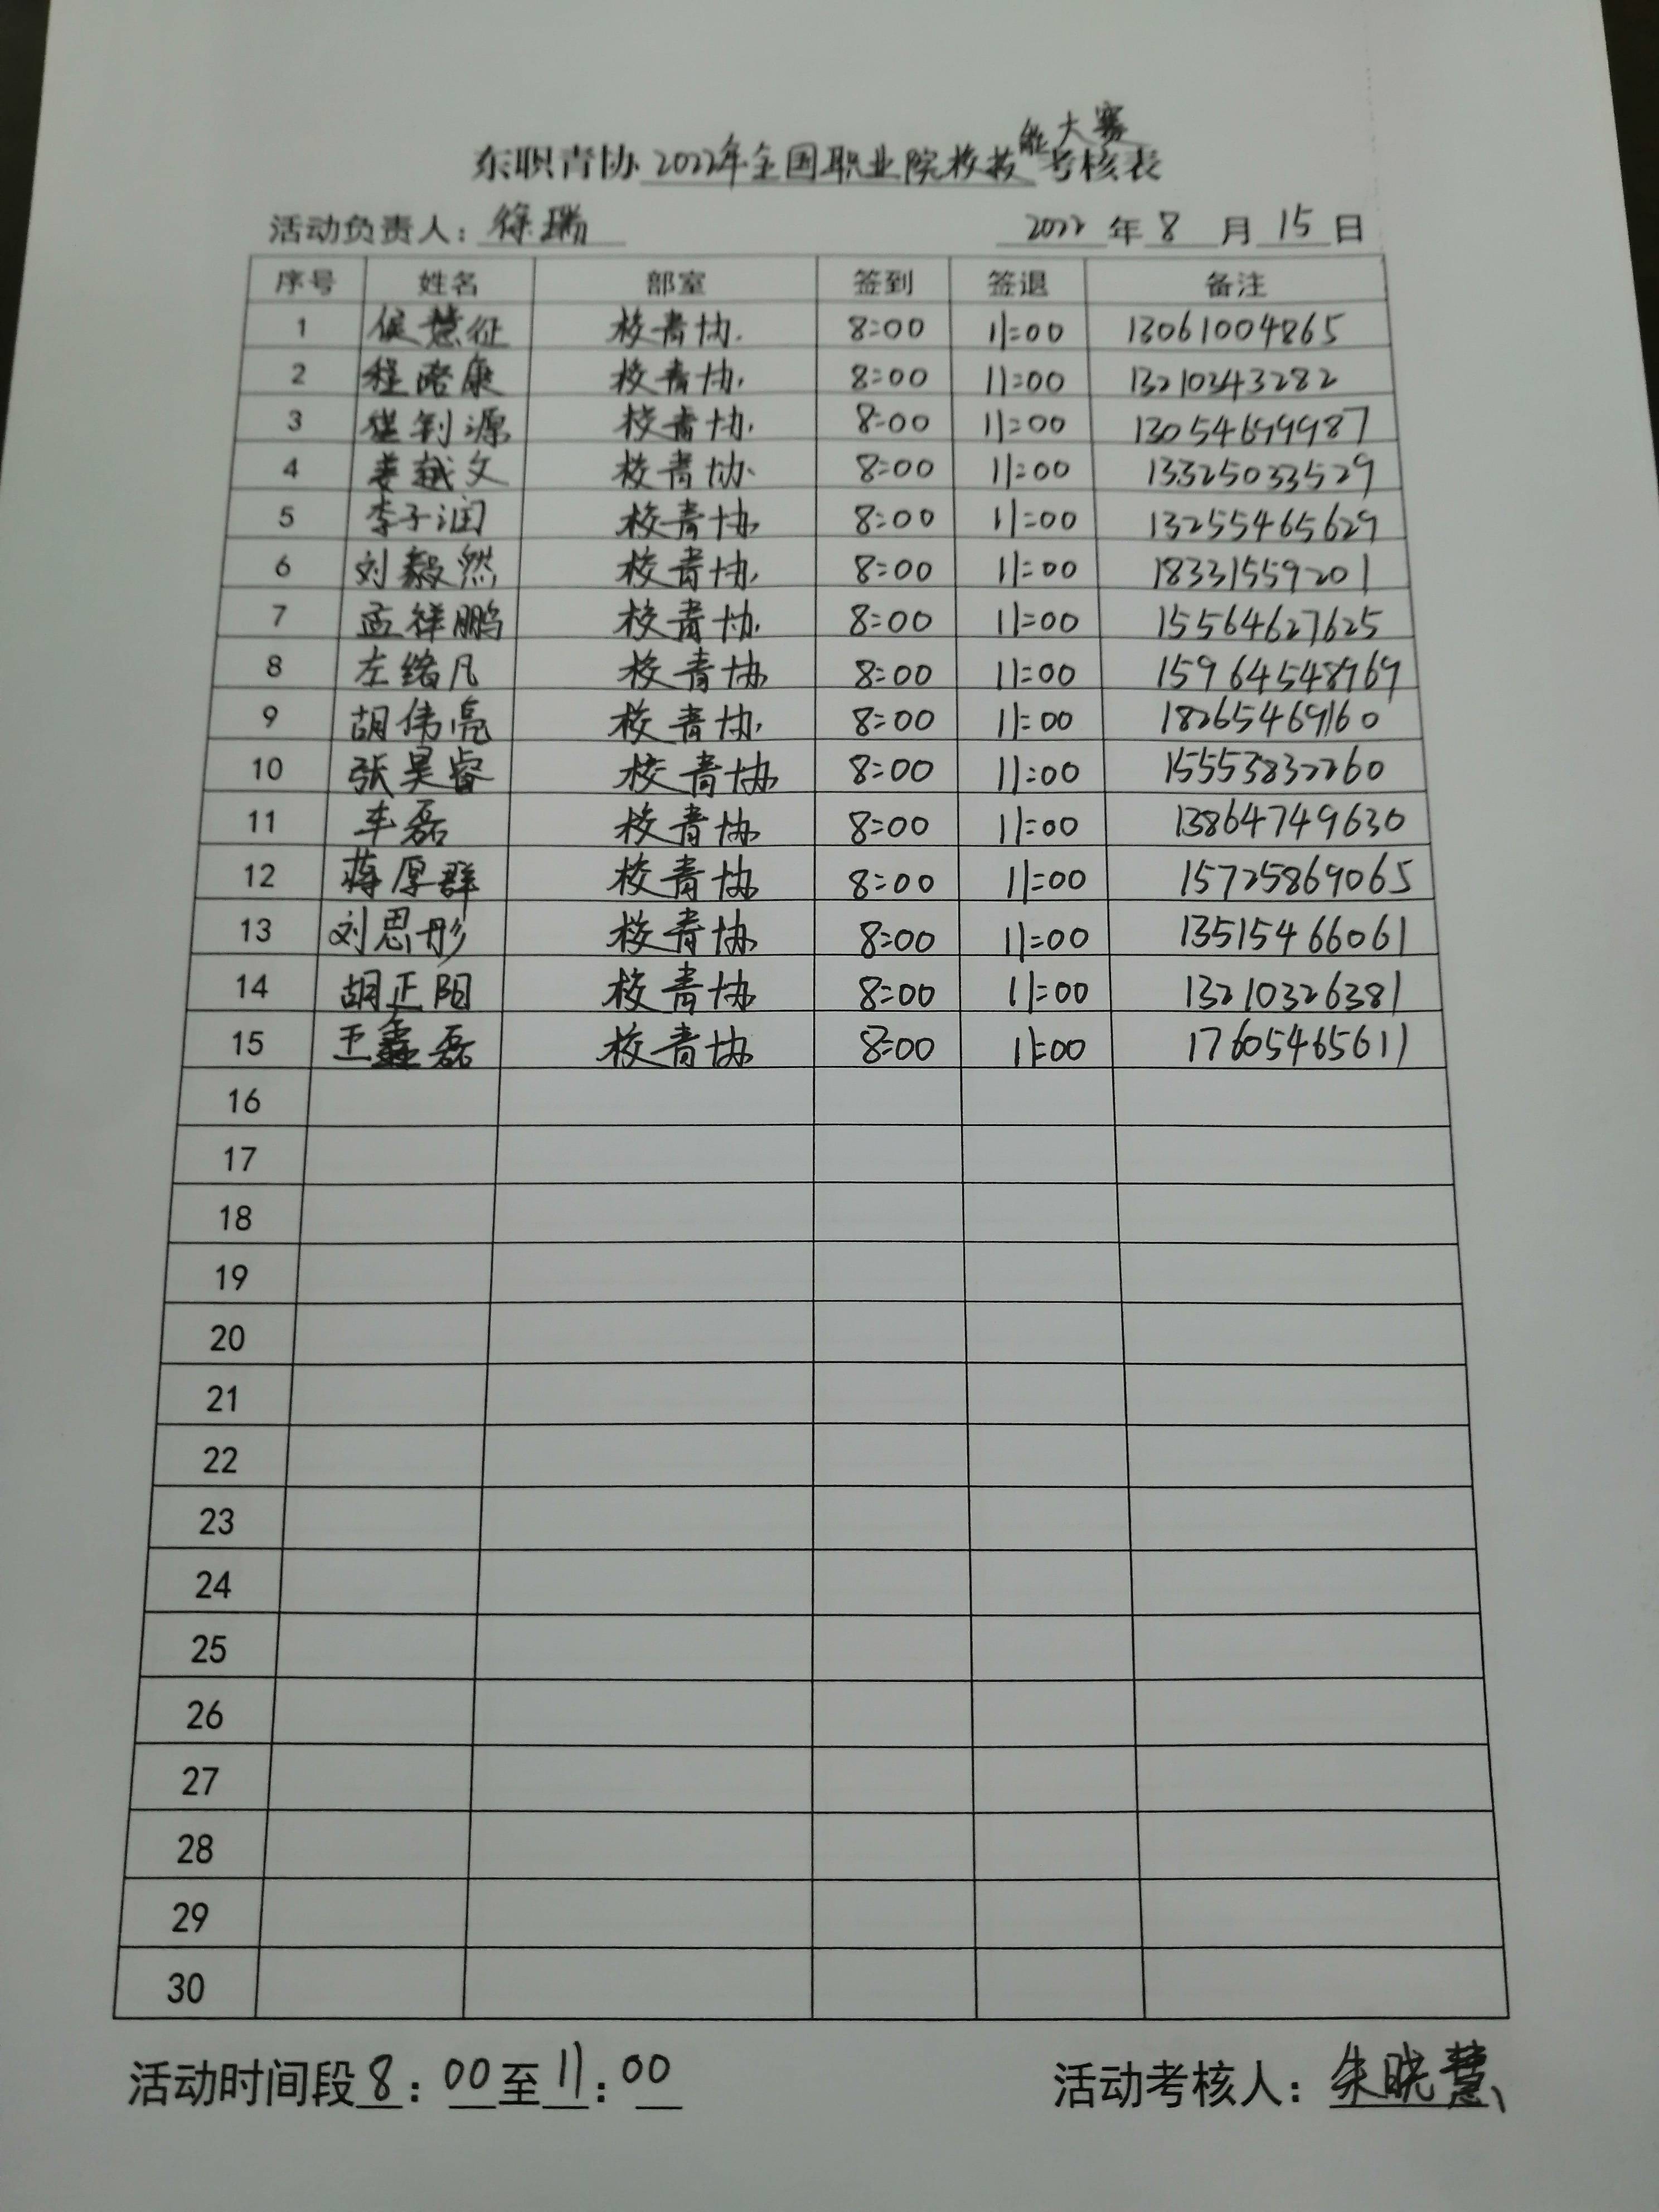 能大赛
东职青协 2022年全国职业院校技 考核表
活动负责人：徐瑞 2022 年 8 月 15 日
序号 姓名 部室 签到 签退 备注
1 侯慧征 校青协. 8:00 11:00 13061004865
2 程 康 校青协. 8:00 11:00 13210343282
3 崔钊源 校青协. 8:00 11:00 13054699987
4 姜越文 校青协. 8:00 11:00 13325033529
5 李子润 校青协 8:00 11:00 13255465629
6 刘毅然 校青协. 8:00 11:00 18331559201
7 孟祥鹏 校青协. 8:00 11:00 15564627625
8 左绪凡 校青协 8:00 11:00 15964548969
9 胡伟亮 校青协. 8:00 11:00 18265469160
10 张昊睿 校青协 8:00 11:00 15553832260
11 车磊 校青协 8:00 11:00 13864749630
12 蒋厚群 校青协 8:00 11:00 15725869065
13 刘思彤 校青协 8:00 11:00 13515466061
14 胡正阳 校青协 8:00 11:00 13210326381
15 王鑫磊 校青协 8:00 11:00 17605465611
16
17
18
19
20
21
22
23
24
25
26
27
28
29
30
活动时间段 8：00 至 11：00 活动考核人：朱晓慧